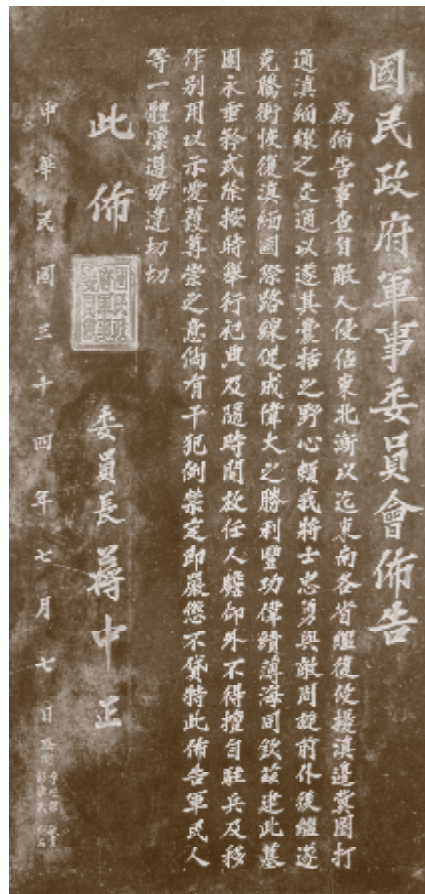 國民政府軍事委員會佈告
為佈告事查自敵人侵佔東北漸以迄東南各省繼復侵擾滇邊冀圖打
通滇緬線之交通以遂其囊括之野心賴我將士忠勇與敵周旋前仆後繼遂
克騰衝恢復滇緬國際路線促成偉大之勝利豐功偉績薄海同欽茲建此墓
園永垂矜式除按時舉行祀典及隨時開放任人瞻仰外不得擅自駐兵及移
作別用以示愛護尊崇之意倘有干犯例禁定即嚴懲不貸特此佈告軍民人
等一體凜遵毋違切切
此佈
委員長蔣中正
中華民國三十四年七月七日